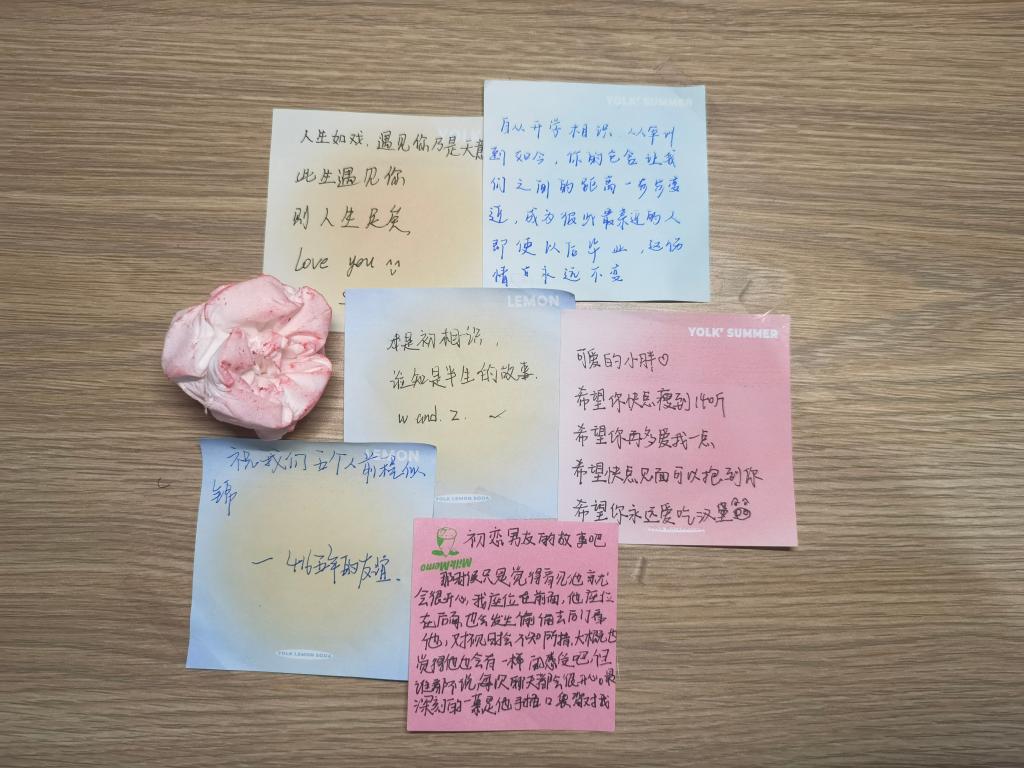 人生如戏,遇见你乃是天意
此生遇见你
则人生足矣
Love you
YOLK' SUMMER
自从开学相识,从军训
到如今,你的包含让我
们之间的距离一步步变
近,成为彼此最亲近的人
即便以后毕业,这份
情
永远不变
LEMON
本是初相识,
谁知是半生的故事.
w and. z. ~
YOLK LEMON SODA
YOLK' SUMMER
可爱的小胖♡
希望你快点瘦到140斤
希望你再多爱我一点
希望快点见面可以抱到你
希望你永远爱吃汉堡
祝我们五个人前程似
锦
的友谊.
YOLK LEMON SODA
MilkMemo
初恋男友的故事吧
那时候只是觉得看见他就
会很开心,我座位在前面,他座位
在后面,也会发生偷偷去后门看
他,对视时会不知所措,大概也
觉得他也会有一样的感受吧,但
谁都不说,每次聊天都会很开心。最
深刻的一幕是他手插口袋背对我